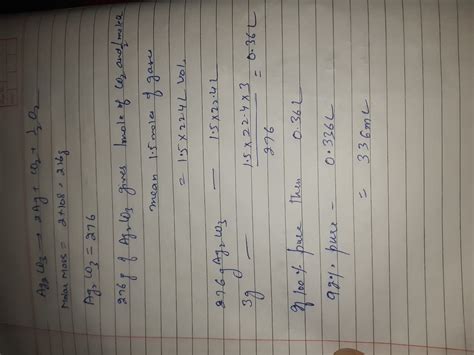 Ag₂CO₃ → 2Ag + CO₂ + ½O₂
Molar mass = 2×108 = 276g
Ag₂CO₃ = 276
276 g of Ag₂CO₃ gives 1 mole of CO₂ and ½ mole
mean 1.5 moles of gases
= 1.5 × 22.4 L Vol.
276 g Ag₂CO₃ — 1.5 × 22.4 L
3g — 1.5 × 22.4 × 3 / 276 = 0.36L
If 100% pure then 0.36L
92% pure - 0.336L
= 336mL